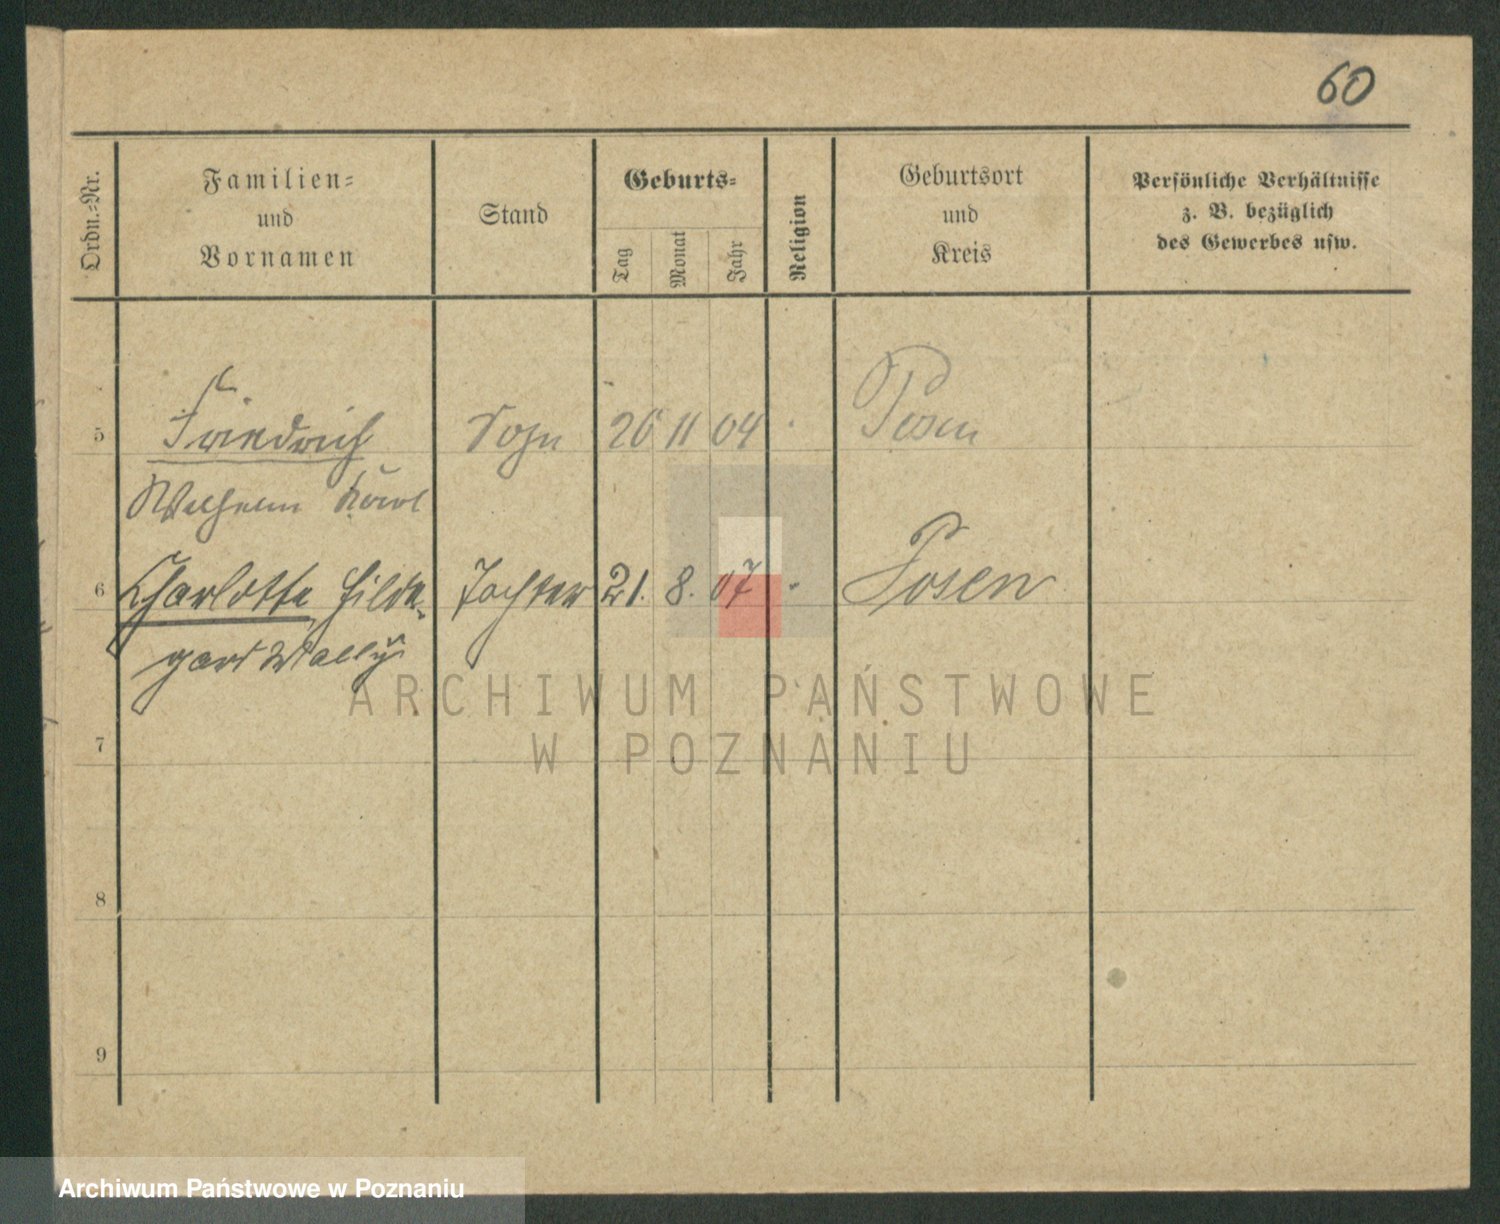 60
Ordn.-Nr.
Familien-
und
Vornamen
Stand
Geburts-
Tag
Monat
Jahr
Religion
Geburtsort
und
Kreis
Persönliche Verhältnisse
z. B. bezüglich
des Gewerbes usw.
5 Friedrich Sohn 26 11 04 Posen
Wilhelm Karl
6 Charlotte Hilde- Tochter 21. 8. 07 " Posen
gard Wally
ARCHIWUM PAŃSTWOWE
W POZNANIU
7
8
9
Archiwum Państwowe w Poznaniu